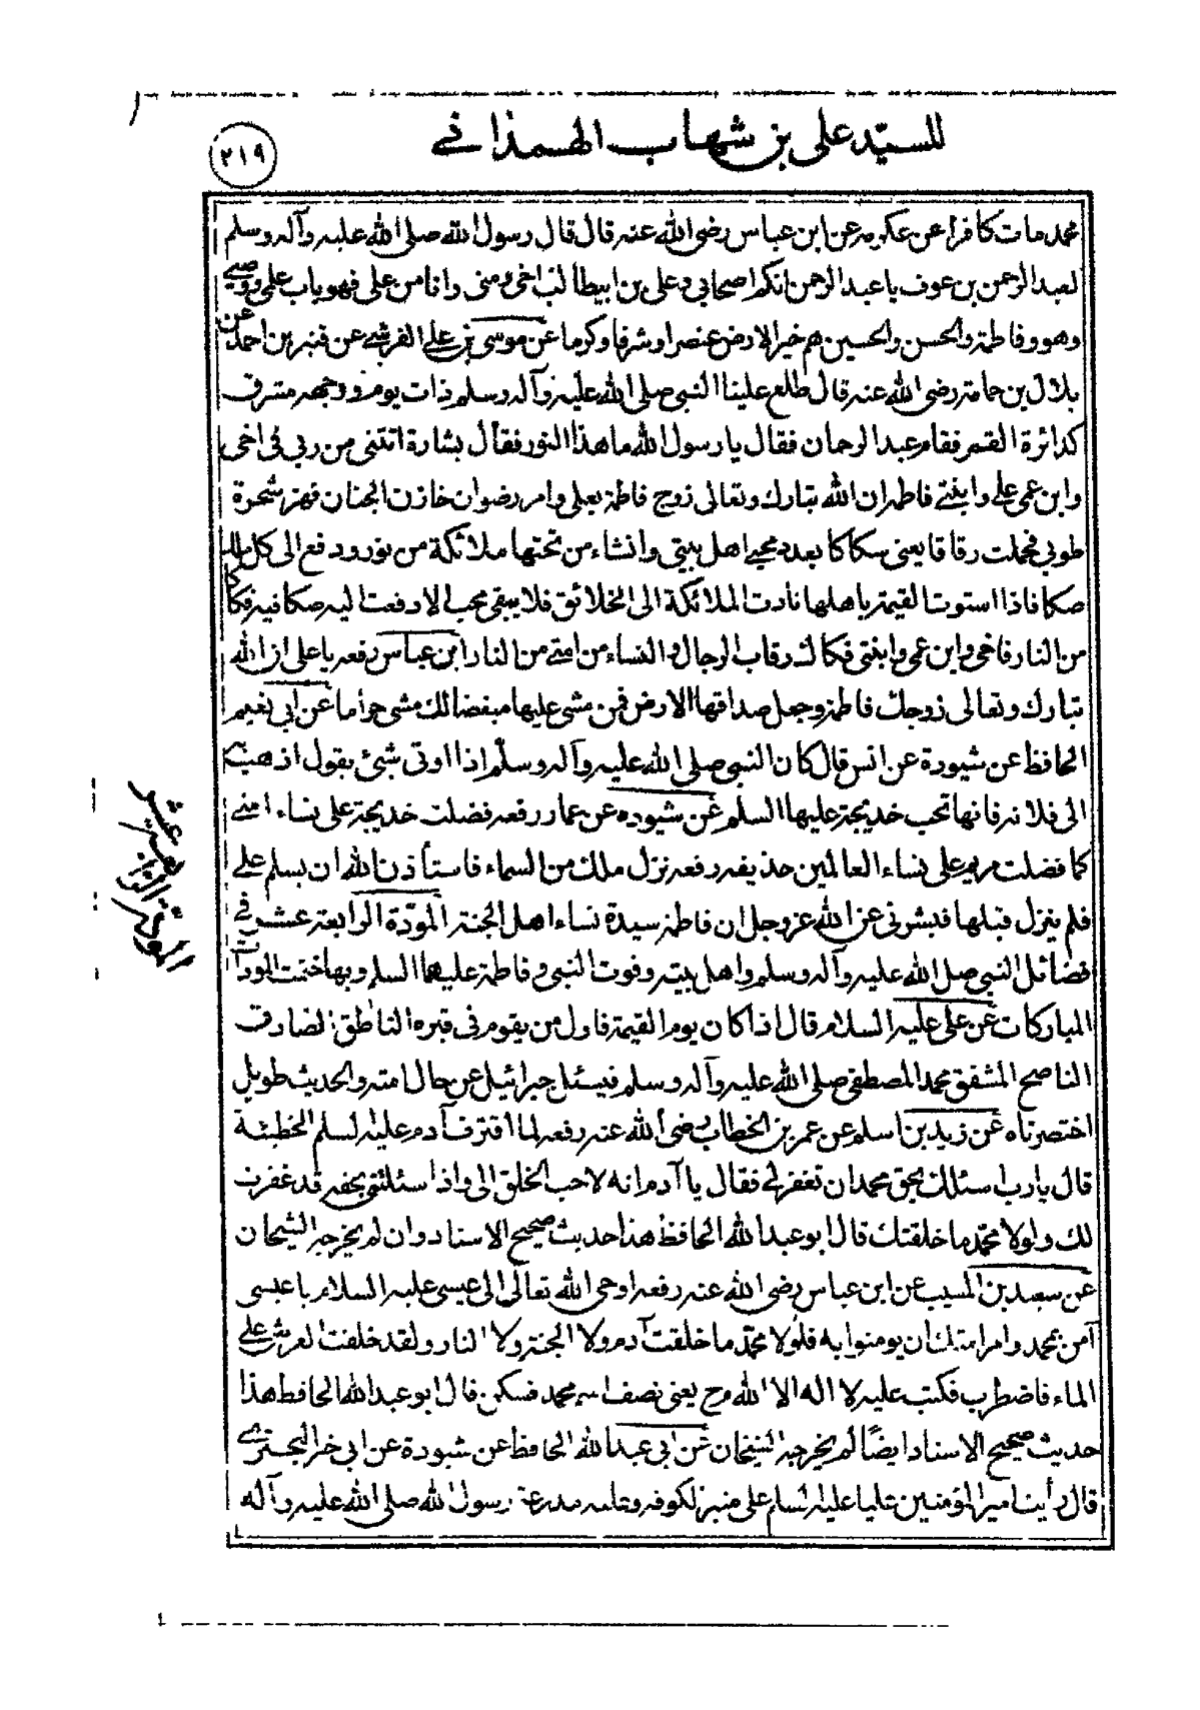 للسيّد على بن شهاب الهمذانى
٢١٩
محمد مات كافرا عن عكرمه عن ابن عباس رضى الله عنه قال قال رسول الله صلى الله عليه وآله وسلم
لعبد الرحمن بن عوف يا عبد الرحمن انكم اصحابى وعلى بن ابيطالب اخى ومنى وانا من على فهو باب علمى ووصيى
وهو وفاطمة والحسن والحسين هم خير الارض عنصرا وشرفا وكرما عن موسى بن على القرشى عن قنبر بن احمد عن
بلال بن حمامة رضى الله عنه قال طلع علينا النبى صلى الله عليه وآله وسلم ذات يوم ووجهه مشرق
كدائرة القمر فقام عبد الرحمان فقال يا رسول الله ما هذا النور فقال بشارة اتتنى من ربى فى اخى
وابن عمى على وابنتى فاطمه ان الله تبارك وتعالى زوج فاطمة بعلى وامر رضوان خازن الجنان فهز شجرة
طوبى فحملت رقاقا يعنى سكاكا بعدد محبى اهل بيتى وانشاء من تحتها ملائكة من نور ودفع الى كل ملك
صكا فاذا استوت القيمة باهلها نادت الملائكة الى الخلائق فلا يبقى محب الا دفعت اليه صكا فيه فكاكا
من النار فاخى وابن عمى وابنتى فكاك رقاب الرجال والنساء من امتى من النار ابن عباس رفعه يا على ان الله
تبارك وتعالى زوجك فاطمة وجعل صداقها الارض فمن مشى عليها مبغضا لك مشى حراما عن ابى نعيم
الحافظ عن شيوره عن انس قال كان النبى صلى الله عليه وآله وسلم اذا اوتى شئ يقول اذهبى به
الى فلانه فانها تحب خديجة عليها السلم عن شيوده عن عمار رفعه فضلت خديجة على نساء امتى
كما فضلت مريم على نساء العالمين حذيفه رفعه نزل ملك من السماء فاستأذن الله ان يسلم على
فلم ينزل قبلها فبشرنى عن الله عز وجل ان فاطمة سيدة نساء اهل الجنة المودّة الرابعة عشر فى
فضائل النبى صلى الله عليه وآله وسلم واهل بيته وفوت النبى وفاطمة عليهما السلم وبها ختمت المودات
المودّة الرابعة عشر
المباركات عن على عليه السلام قال اذا كان يوم القيمة فاول من يقوم فى قبره الناطق الصادق
الناصح المشفق محمد المصطفى صلى الله عليه وآله وسلم فيسئل جبرائيل عن حال امته والحديث طويل
اختصرناه عن زيد بن اسلم عن عمر بن الخطاب رضى الله عنه رفعه لما اقترف آدم عليه السلم الخطيئة
قال يا رب اسئلك بحق محمد ان تغفر لى فقال يا آدم انه لاحب الخلق الى واذا سئلتنى بحقه قد غفرت
لك ولولا محمّد ما خلقتك قال ابو عبد الله الحافظ هذا حديث صحيح الاسناد وان لم يخرجه الشيخان
عن سعيد بن المسيب عن ابن عباس رضى الله عنه رفعه اوحى الله تعالى الى عيسى عليه السلام يا عيسى
آمن بمحمد وامر امتك ان يومنوا به فلولا محمّد ما خلقت آدم ولا الجنة ولا النار ولقد خلقت العرش على
الماء فاضطرب فكتبت عليه لا اله الا الله مح يعنى نصف اسم محمد فسكن قال ابو عبد الله الحافظ هذا
حديث صحيح الاسناد ايضًا لم يخرجه الشيخان عن ابى عبد الله الحافظ عن شيوده عن ابى البخترى
قال رأينا امير المؤمنين عليا عليه السلم على منبر الكوفه وعليه مدرعة رسول الله صلى الله عليه وآله